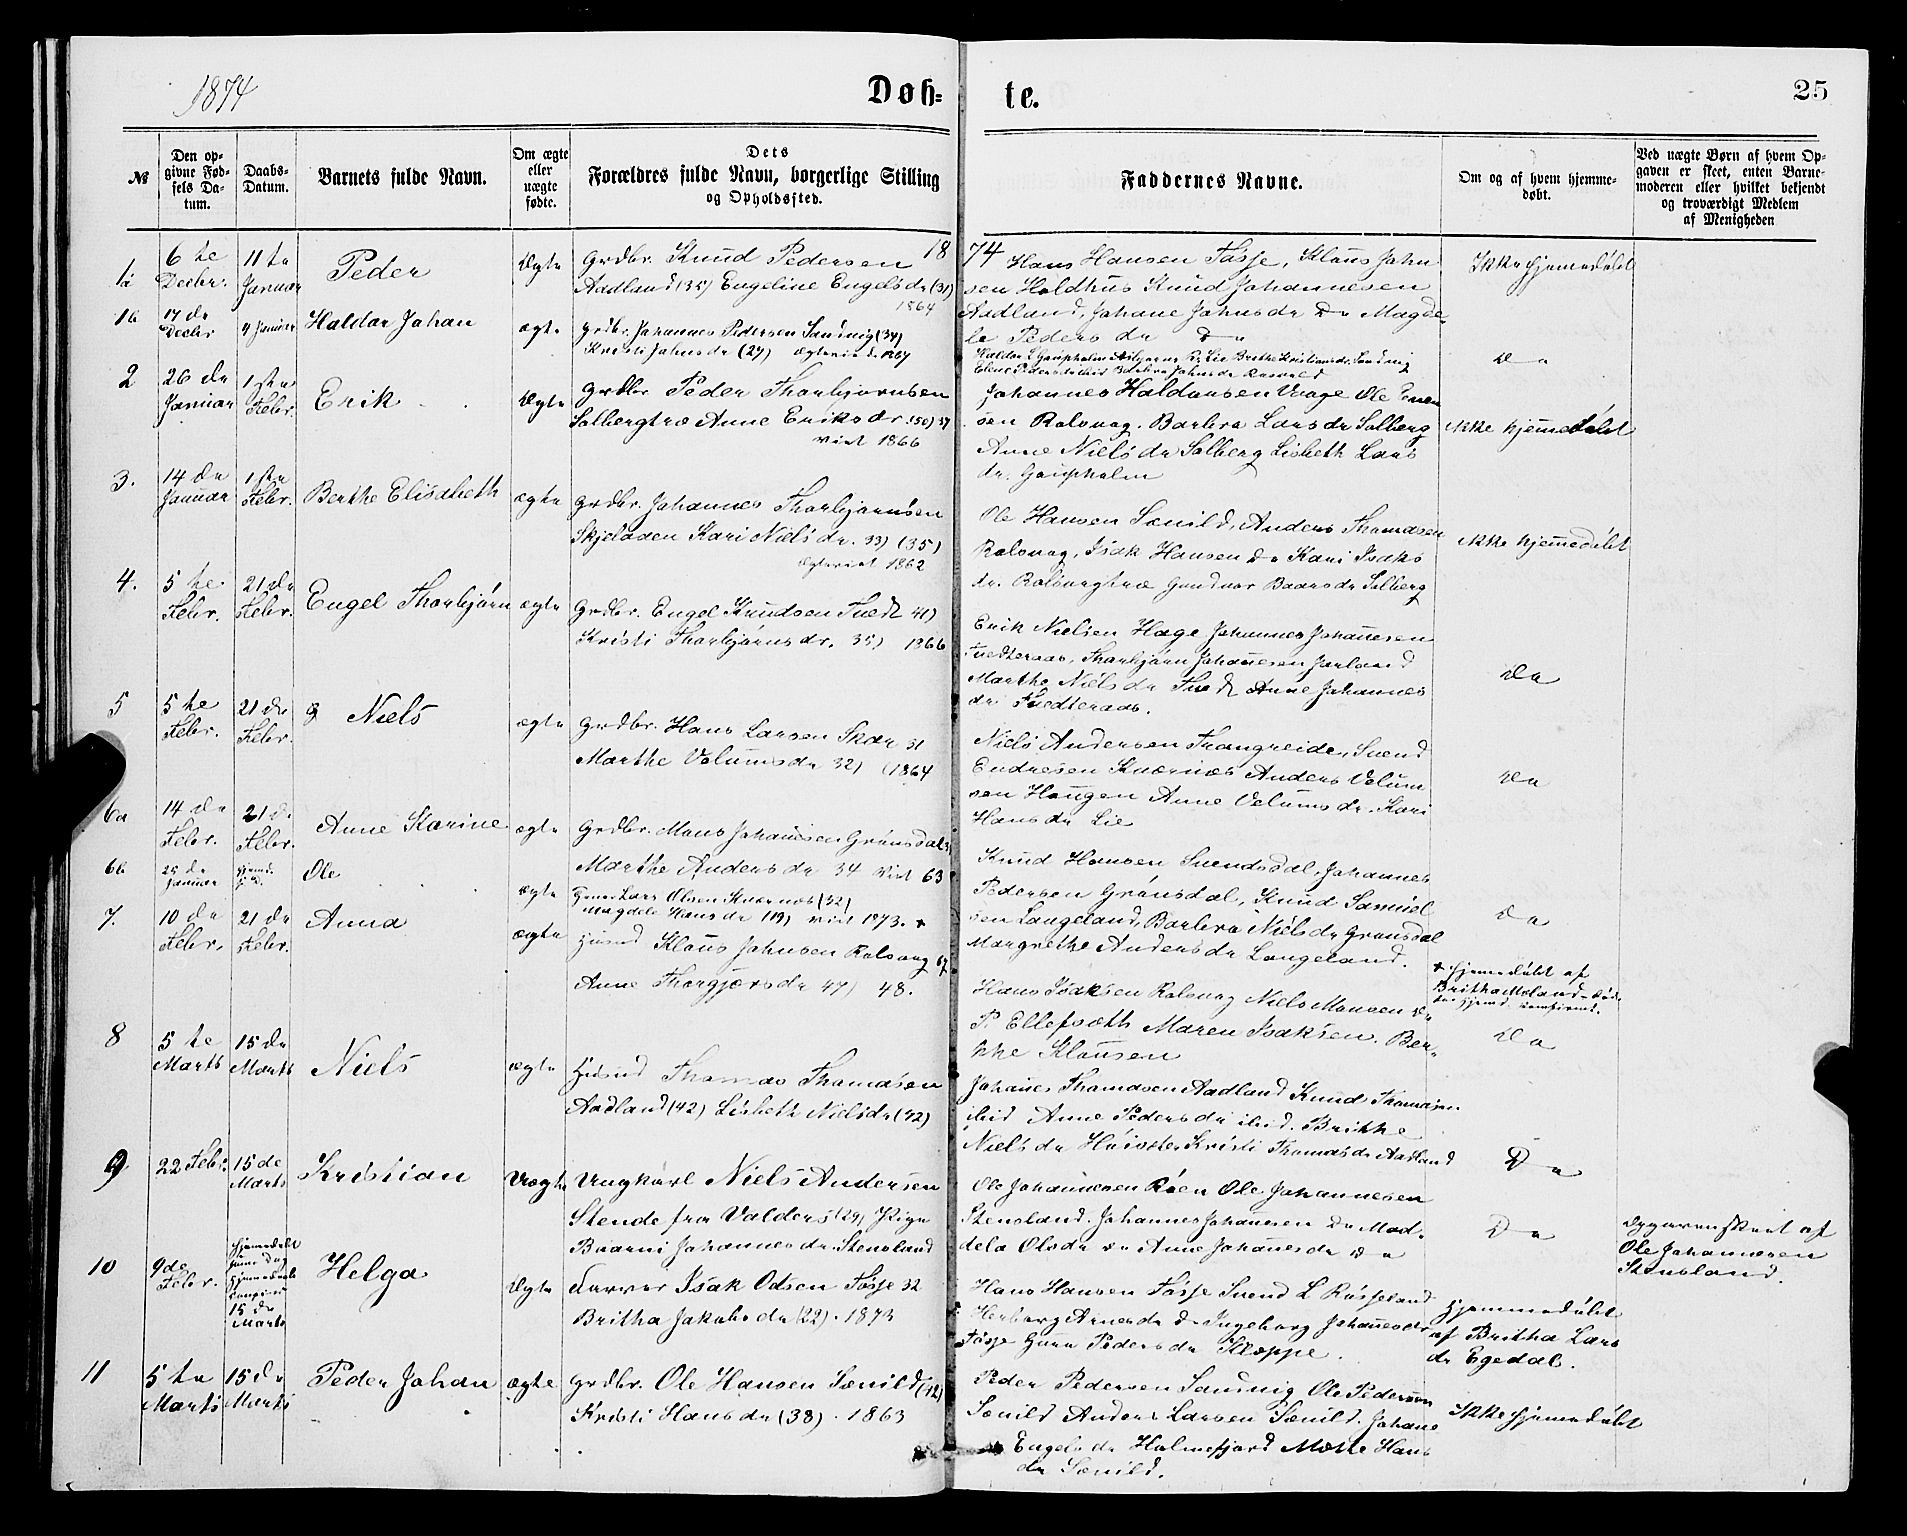 1874
Døb=
te.
25
№
Den op-
givne Fød-
sels Da-
tum.
Daabs-
Datum.
Barnets fulde Navn.
Om ægte
eller
uægte
fødte.
Dets
Forældres fulde Navn, borgerlige Stilling
og Opholdssted.
Faddernes Navne.
Om og af hvem hjemme-
døbt.
Ved uægte Børn af hvem Op-
gaven er skeet, enten Barne-
moderen eller hvilket bekjendt
og troværdigt Medlem
af Menigheden
1874
1a
6te
Decbr.
11te
Januar
Peder
Ægte
Grdbr. Knud Pedersen
Aadland (35) Engeline Engelsdr (31)
1864
Hans Hansen Tøsse, Klaus John
sen Holdhus Knud Johannesen
Aadland, Johane Johnsdr Do Magde-
le Pedersdr Do
Ikke hjemedøbt
1b
17de
Decbr
4 Januar
Haldor Johan
ægte
Grdbr. Johannes Pedersen Sandvig (34)
Kristi Johnsdr (27)
Do
2
26de
Januar
1ste
Febr.
Erik
Ægte
Grdbr Peder Thorbjørnsen
Solbergtræ Anne Eriksdr 37
viet 1866
Johannes Haldorsen Vaage Ole
sen Rolvvag. Barbra Larsdr Solberg
Anne Nielsdr Solberg Lisbeth Lars
dr. Gaupholm
ikke hjemedøbt
3.
14de
Januar
1ste
Febr.
Berthe Elisabeth
ægte
Grdbr. Johannes Thorbjørnsen
Kari Nielsdr. 33) (35)
Ægteviet 1862
Ole Hansen Sævild, Anders Thomasen
Rolvvag, Isak Hansen Do Kari Isaks
dr. Rolvvagtræ Baarsdr Solberg
ikke hjemedøbt
4.
5te
Febr.
21de
Febr.
Engel Thorbjørn
ægte
Grdbr. Engel Knudsen Tvedt 41)
Kristi Thorbjørnsdr. 35) 1866
Erik Nielsen Hage Johannes Johannesen
Tvedteraas, Thorbjørn Johannesen Jarland
Marthe Nielsdr Tvedt Anne Johannes
dr Tvedteraas.
Do
5
5te
Febr.
21de
Febr.
Niels
ægte
Grdbr. Hans Larsen Skar 31
Marthe Velumsdr 32) (1864
Niels Andersen Trangreide, Svend
Endresen Kværnæs Anders Velum
sen Haugen Anne Velumsdr. Kari
Hansdr Lie
Do
6a
14de
Febr.
21de
Febr.
Anne Karine
ægte
Grdbr. Mons Johannesen Grønsdal
Marthe Andersdr 34 viet 63
Knud Hansen Svendsdal, Johannes
Pedersen Grønsdal, Knud Samuel
sen Langeland, Barbra Nielsdr Grønsdal
Margrethe Andersdr Langeland.
Do
6b
25de
Januar
Ole
ægte
Lars Olsen Kværnæs (32)
Magdele Hansdr (19) viet 1873. +
+ hjemedøbt af
Britha
7.
10de
Febr.
21de
Febr.
Anna
ægte
Husmd Klaus Johnsen Rolvvag 47
Anne Thorgjersdr 47) 48.
Hans Isaksen Rolvvag Niels Monsen Do
P. Ellefsæth Maren Isaksen. Ber-
the Klausen
Do
8
5te
Marts
15de
Marts
Niels
ægte
Husmd Thomas Thomasen
Aadland (42) Lisbeth Nielsdr (42)
Johannes Thomasen Aadland Knud Thomasen
ibid Anne Pedersdr ibid. Brithe
Nielsdr Kristi Thomasdr Aadland
Do
9
22 Febr.
15de
Marts
Kristian
Uægte
Ungkarl Niels Andersen
Stende fra Valders (29) Pige
Johannesdr. Stensland
Ole Johannesen Røen Ole Johannesen
Stensland. Johannes Johannesen Do Mad-
dela Olsdr Do Anne Johannesdr Do
Do
Opgaven skeet af
Ole Johannesen
Stensland.
10
9de
Febr.
15de
Marts
Helga
Ægte
Isak Odsen Tøsse 32
Britha Jakobsdr (22). 1873
Hans Hansen Tøsse Svend L Røsseland
Herborg Arnesdr Do Ingeborg Johannesdr
Tøsse Guro Pedersdr Kleppe.
hjemmedøbt
af Britha Lars
dr Egedal.
11
5te
Marts
15de
Marts
Peder Johan
ægte
Grdbr. Ole Hansen Sævild (42)
Kristi Hansdr (38). 1863
Peder Pedersen Sandvig Ole Pedersen
Sævild Anders Larsen Sævild. Johane
Engelsdr Holmefjord Mette Hans
dr Sævild.
Ikke hjemedøbt